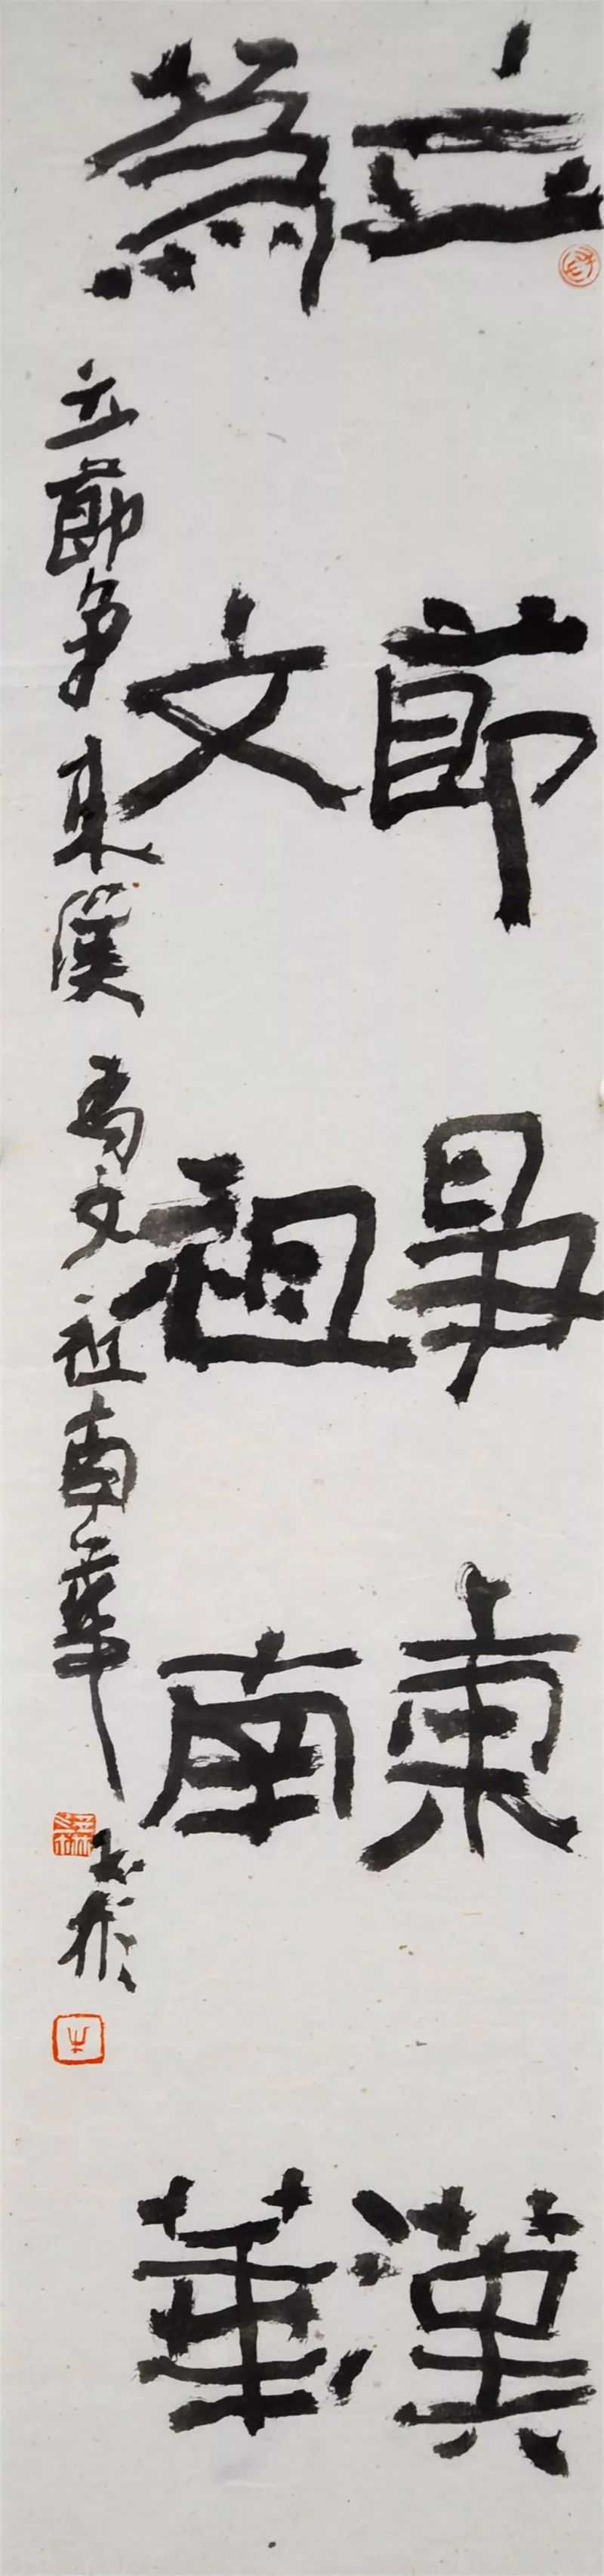 立節爭東漢
為文祖南華
立節爭東漢為文祖南華